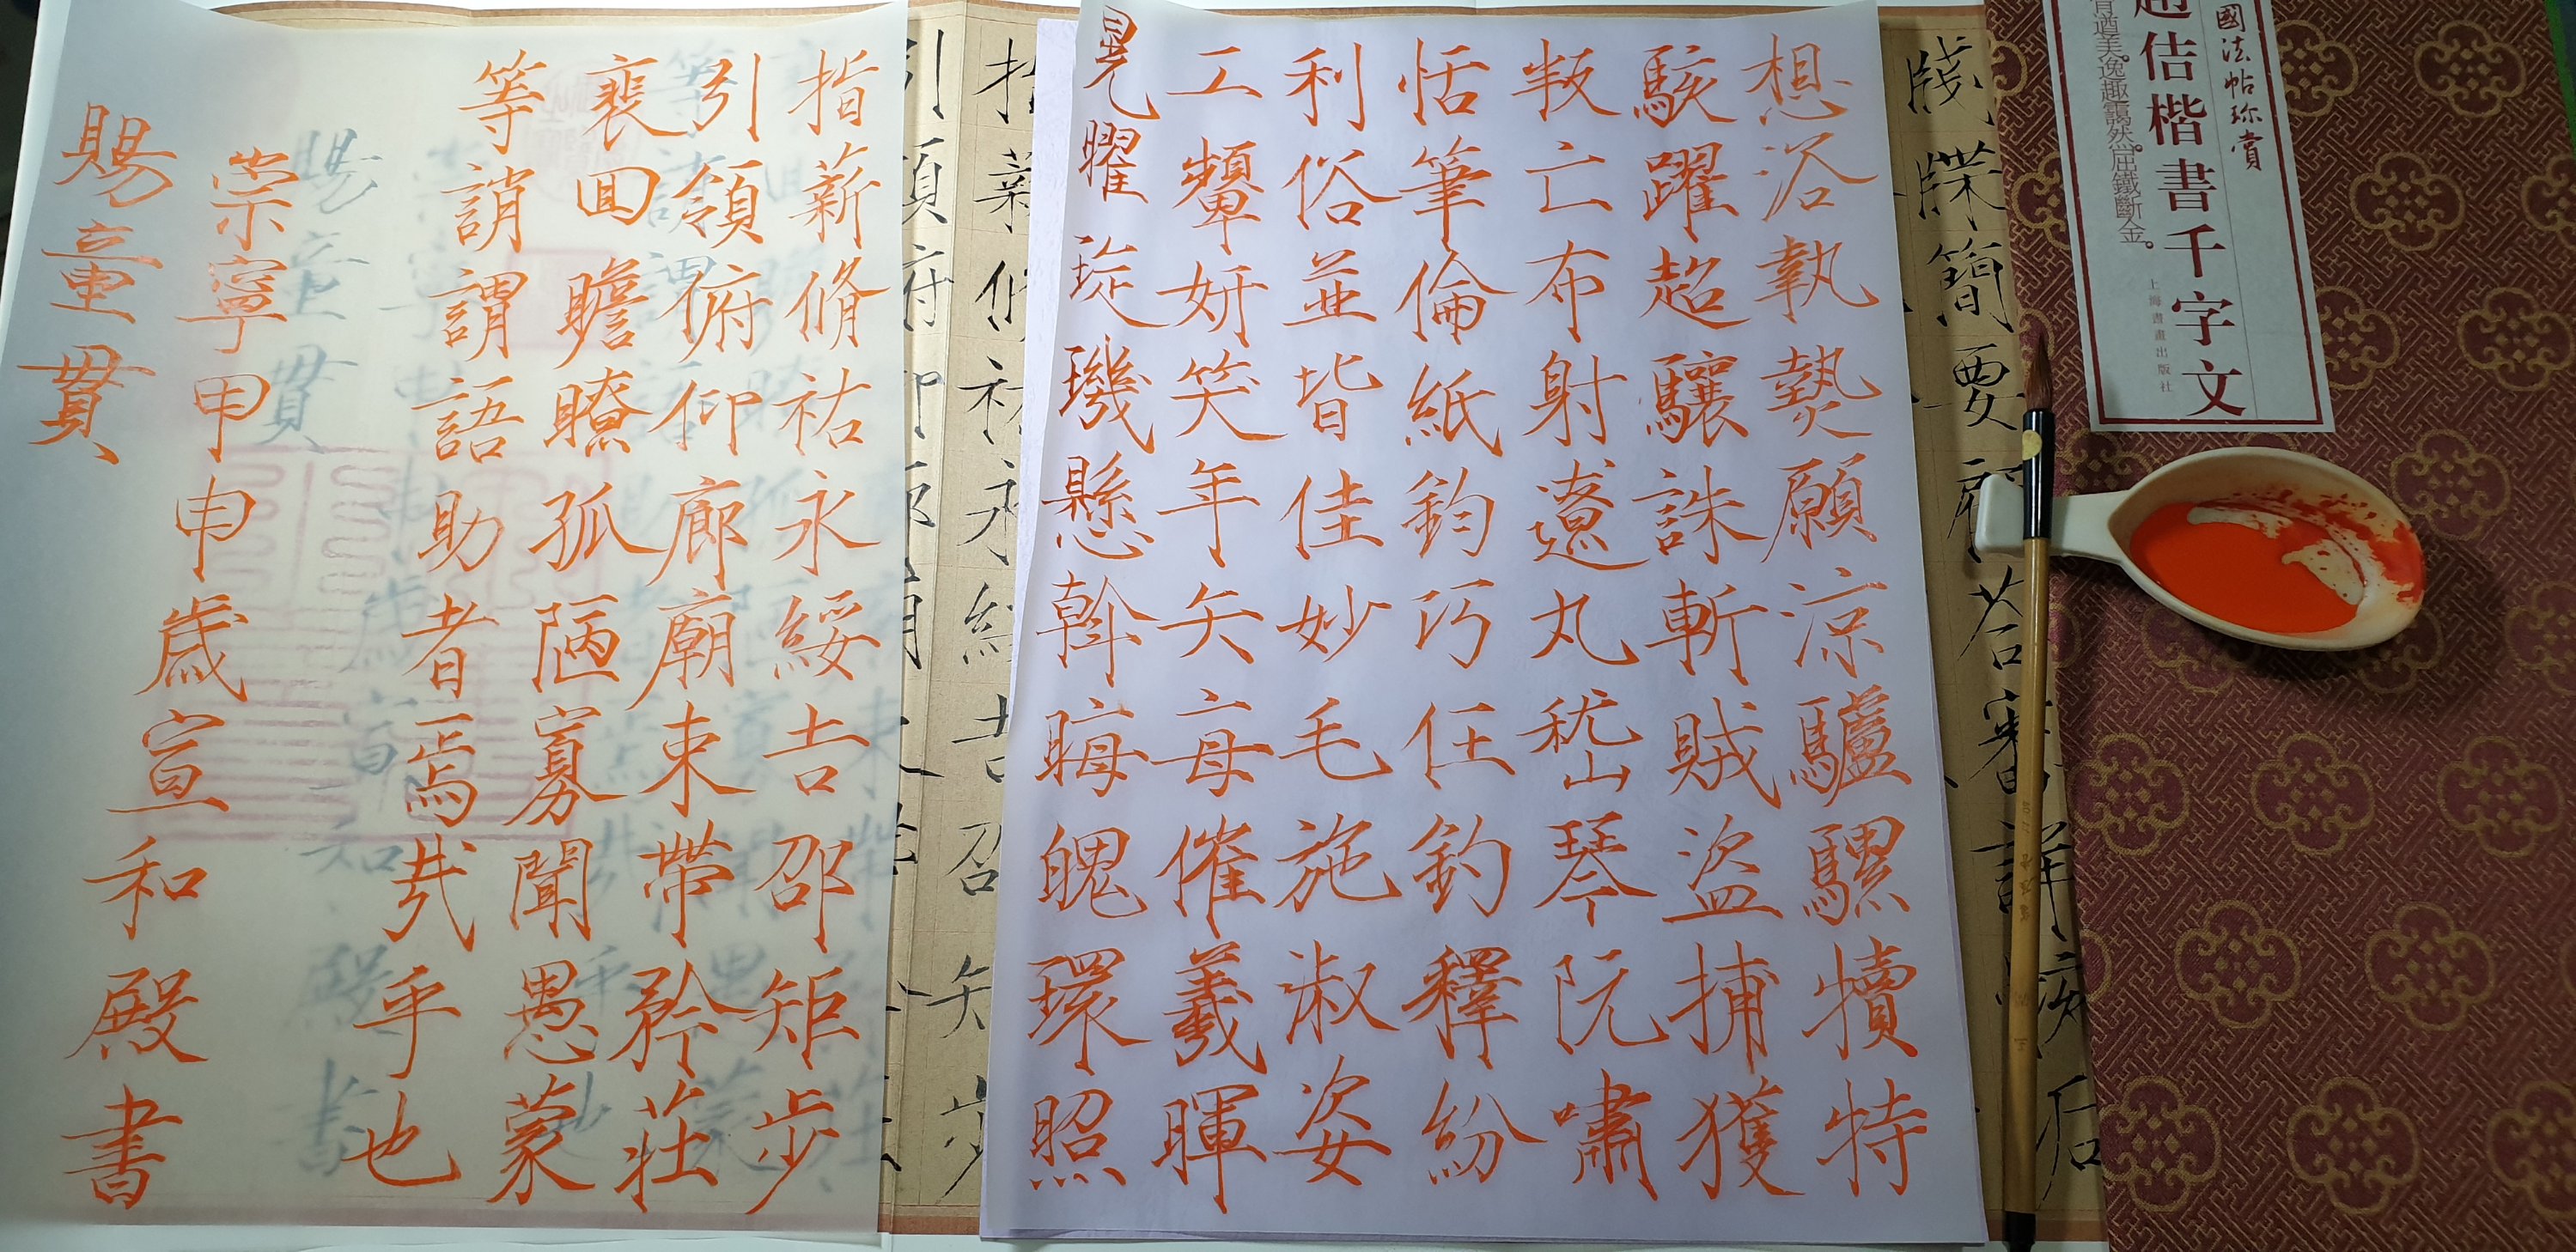 國法帖珍賞
趙佶楷書千字文
肯遒美逸趣靄然屈鐵斷金。
上海書畫出版社
牋牒簡要荅審詳
想浴執熱願涼驢騾犢特
駭躍超驤誅斬賊盜捕獲
叛亡布射遼丸嵇琴阮嘯
恬筆倫紙鈞巧任釣釋紛
利俗並皆佳妙毛施淑姿
工顰妍笑年矢每催羲暉
晃曜琁璣懸斡晦魄環照
指薪脩祐永綏吉邵矩步
引領俯仰廊廟束帶矜莊
裵囬瞻瞭孤陋寡聞愚蒙
等誚謂語助者焉哉乎也
崇寧甲申歲宣和殿書
賜童貫